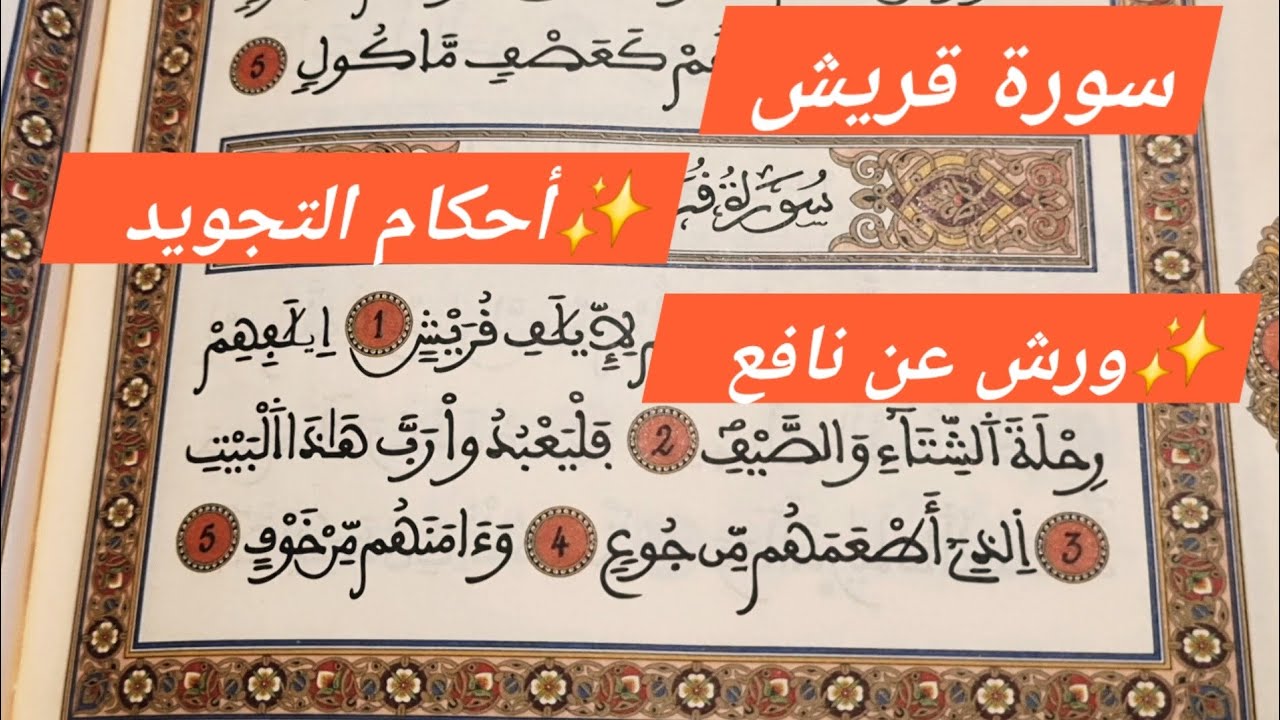 كَعَصْفٍ مَّاكُولٍ 5
سورة قريش
سُورَةُ
✨أحكام التجويد
لِإِيلَٰفِ قُرَيْشٍ 1 اِ۪يلَٰفِهِمْ
✨ورش عن نافع
رِحْلَةَ اَ۬لشِّتَآءِ وَالصَّيْفِ 2 فَلْيَعْبُدُواْ رَبَّ هَٰذَا اَ۬لْبَيْتِ
3 اِ۬لذِےٓ أَطْعَمَهُم مِّن جُوعٍ 4 وَءَامَنَهُم مِّنْ خَوْفٍ 5